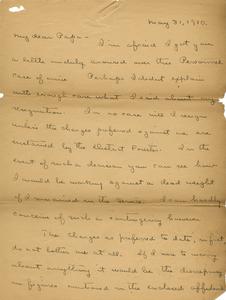 May 31, 1910.
My dear Papa -
I'm afraid I got you
a little unduly worried over this Personnel
case of mine. Perhaps I didn't explain
with enough care what I said about my
resignation. In no case will I resign
unless the charges preferred against me are
sustained by the District Forester. In the
event of such a decision you can see how
I would be working against a dead weight
if I remained in the Service. I can hardly
conceive of such a contingency however.
The charges as preferred to date, in fact,
do not bother me at all. If I was to worry
about anything it would be the discrepancy
in figures mentioned in the enclosed affidavit